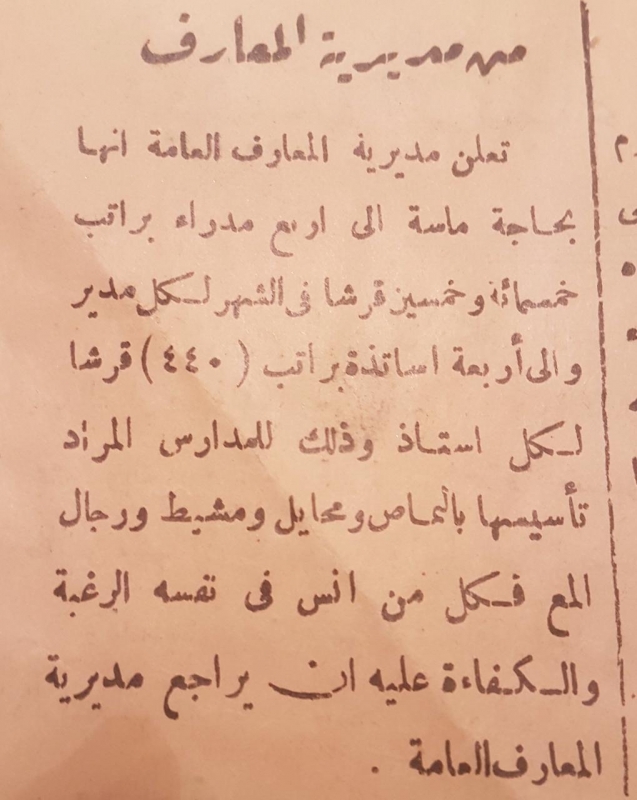 من مديرية المعارف
تعلن مديرية المعارف العامة انها
بحاجة ماسة الى اربع مدراء براتب
خمسمائة وخمسين قرشا فى الشهر لكل مدير
والى أربعة اساتذة براتب (٤٤٠) قرشا
لكل استاذ وذلك للمدارس المراد
تأسيسها بالنماص ومحايل ومشيط ورجال
المع فكل من انس فى نفسه الرغبة
والكفاءة عليه ان يراجع مديرية
المعارف العامة .